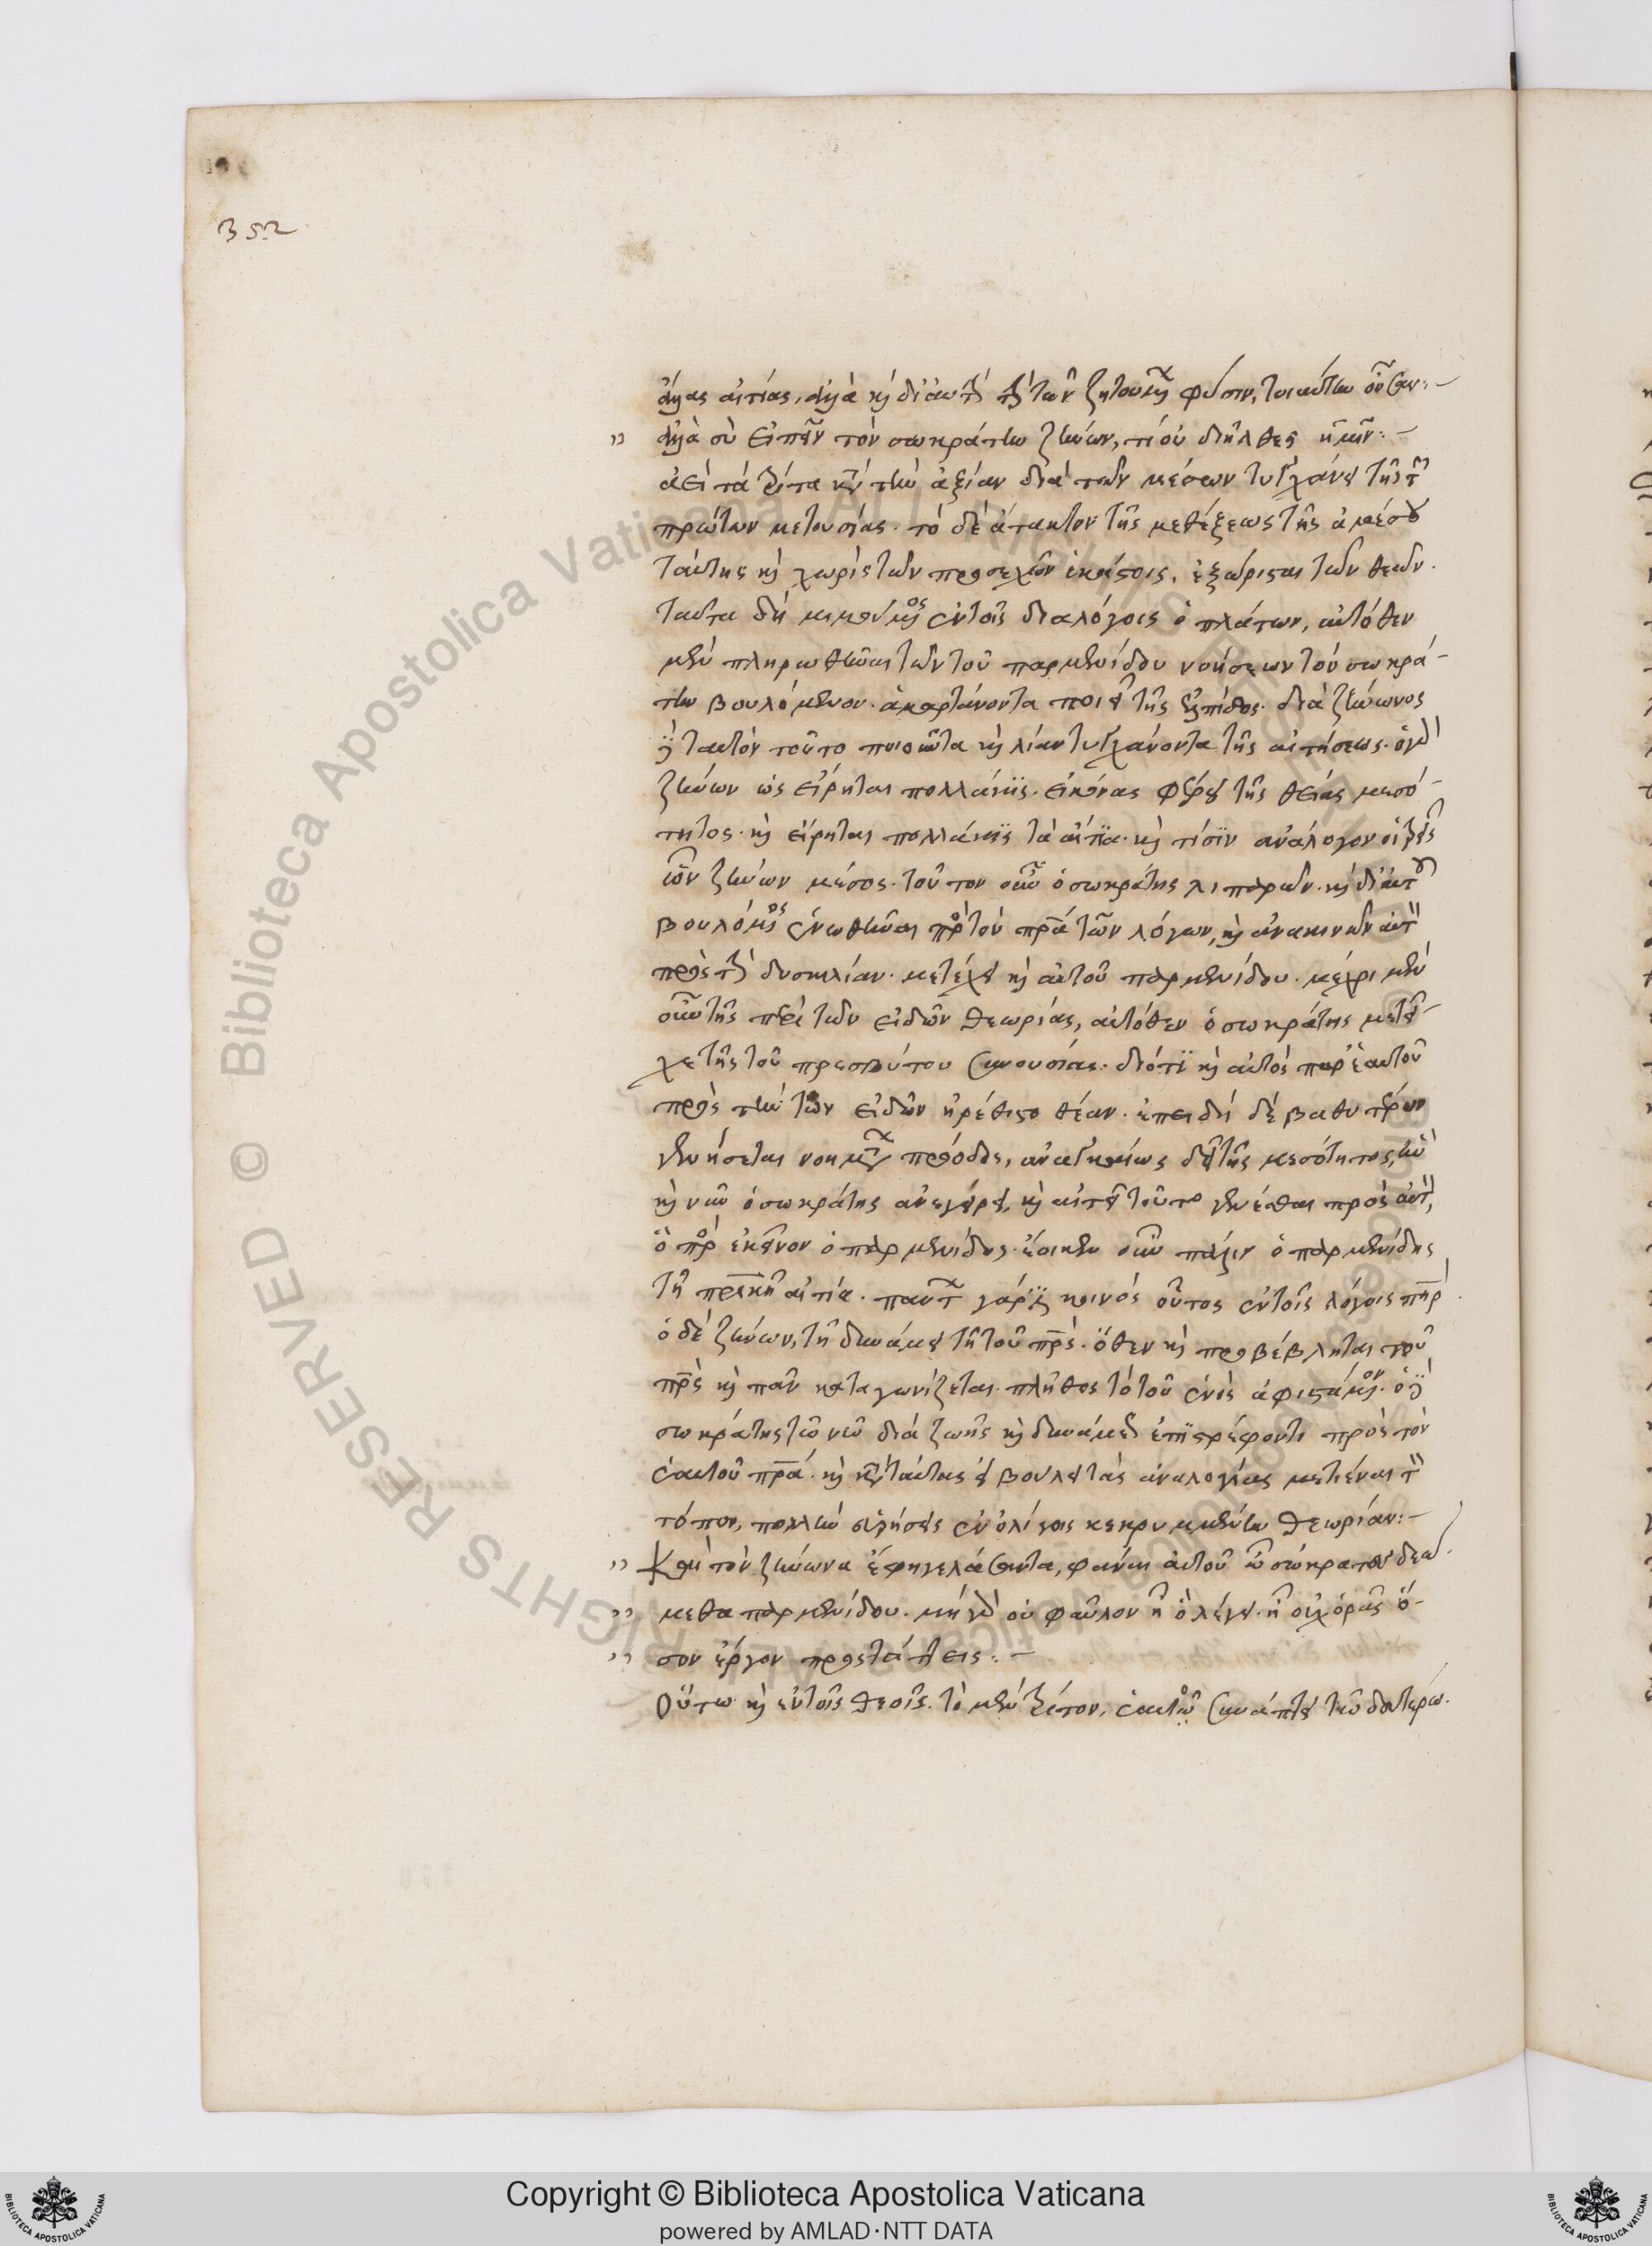 352
ἄλλας αἰτίας, ἀλλὰ καὶ δι' αὐτὴν τὴν τῶν ζητουμένων φύσιν, τοιαύτην οὖσαν:
ἀλλὰ σὺ εἰπεῖν τὸν σωκράτην ζήνων, τί οὐ διῆλθες ἡμῖν:
ἀεὶ τὰ τρίτα κατὰ τὴν ἀξίαν διὰ τῶν μέσων τυγχάνει τῆς τῶν
πρώτων μετουσίας. τὸ δὲ ἄτακτον τῆς μεθέξεως τῆς ἀμέσου
ταύτης καὶ χωρὶς τῶν προσεχῶν ἑκάστοις, ἐξώρισται τῶν θεῶν.
ταῦτα δὴ μιμούμενος ἐν τοῖς διαλόγοις ὁ πλάτων, αὐτόθεν
μὲν πληρωθῆναι τῶν τοῦ παρμενίδου νοήσεων τὸν σωκρά-
την βουλόμενον. ἁμαρτάνοντα ποιεῖ τῆς ἐλπίδος. διὰ ζήνωνος
δὲ ταυτὸν τοῦτο ποιοῦντα καὶ λίαν τυγχάνοντα τῆς αἰτήσεως. ὁ γὰρ
ζήνων ὡς εἴρηται πολλάκις. εἰκόνας φέρει τῆς θείας μεσό-
τητος. καὶ εἴρηται πολλάκις τὰ αἴτια. καὶ τίσιν ἀνάλογον οἱ τρεῖς
ὧν ζήνων μέσος. τοῦτον οὖν ὁ σωκράτης λιπαρῶν. καὶ δι' αὐτοῦ
βουλόμενος ἑνωθῆναι πρὸς τὸν πατέρα τῶν λόγων, καὶ ἀνακινῶν αὐτὸν
πρὸς τὴν δυσκολίαν. μετέχει καὶ αὐτοῦ παρμενίδου. μέχρι μὲν
οὖν τῆς περὶ τῶν εἰδῶν θεωρίας, αὐτόθεν ὁ σωκράτης μετεῖ-
χε τῆς τοῦ πρεσβύτου συνουσίας. διότι καὶ αὐτὸς παρ' ἑαυτοῦ
πρὸς τὴν τῶν εἰδῶν ἠρέθιστο θέαν. ἐπειδὴ δὲ βαθυτέρων
γενήσεται νοημάτων πρόοδος, ἀναγκαίως δεῖ τῆς μεσότητος, ἣν
καὶ νῦν ὁ σωκράτης ἀνεγείρει, καὶ αἰτεῖ τοῦτο γενέσθαι πρὸς αὐτὸν,
ὃ πρὸς ἐκεῖνον ὁ παρμενίδης. ἔοικεν οὖν πάλιν ὁ παρμενίδης
τῇ πατρικῇ αἰτίᾳ. πάντων γάρ ἐστι κοινὸς οὗτος ἐν τοῖς λόγοις πατήρ.
ὁ δὲ ζήνων, τῇ δυνάμει τῇ τοῦ πατρός. ὅθεν καὶ προβέβληται τοῦ
πατρὸς καὶ πᾶν καταγωνίζεται. πλῆθος τὸ τοῦ ἑνὸς ἀφιστάμενον. ὁ δὲ
σωκράτης τῷ νῷ διὰ ζωῆς καὶ δυνάμεως ἐπιστρέφοντι πρὸς τὸν
ἑαυτοῦ πατέρα. καὶ κατὰ ταύτας εἰ βούλει τὰς ἀναλογίας μετιέναι τὸν
τόπον, πολλὴν εὑρήσεις ἐν ὀλίγοις κεκρυμμένην θεωρίαν:
Καὶ τὸν ζήνωνα ἔφη γελάσαντα, φάναι αὐτοῦ ὦ σώκρατες δεώ-
μεθα παρμενίδου. μὴ γὰρ οὐ φαῦλον ᾖ ὃ λέγει. ἢ οὐχ ὁρᾷς ὅ-
σον ἔργον προστάττεις:
Οὕτω καὶ ἐν τοῖς θεοῖς. τὸ μὲν τρίτον, ἑαυτὸ συνάπτει τῷ δευτέρῳ.